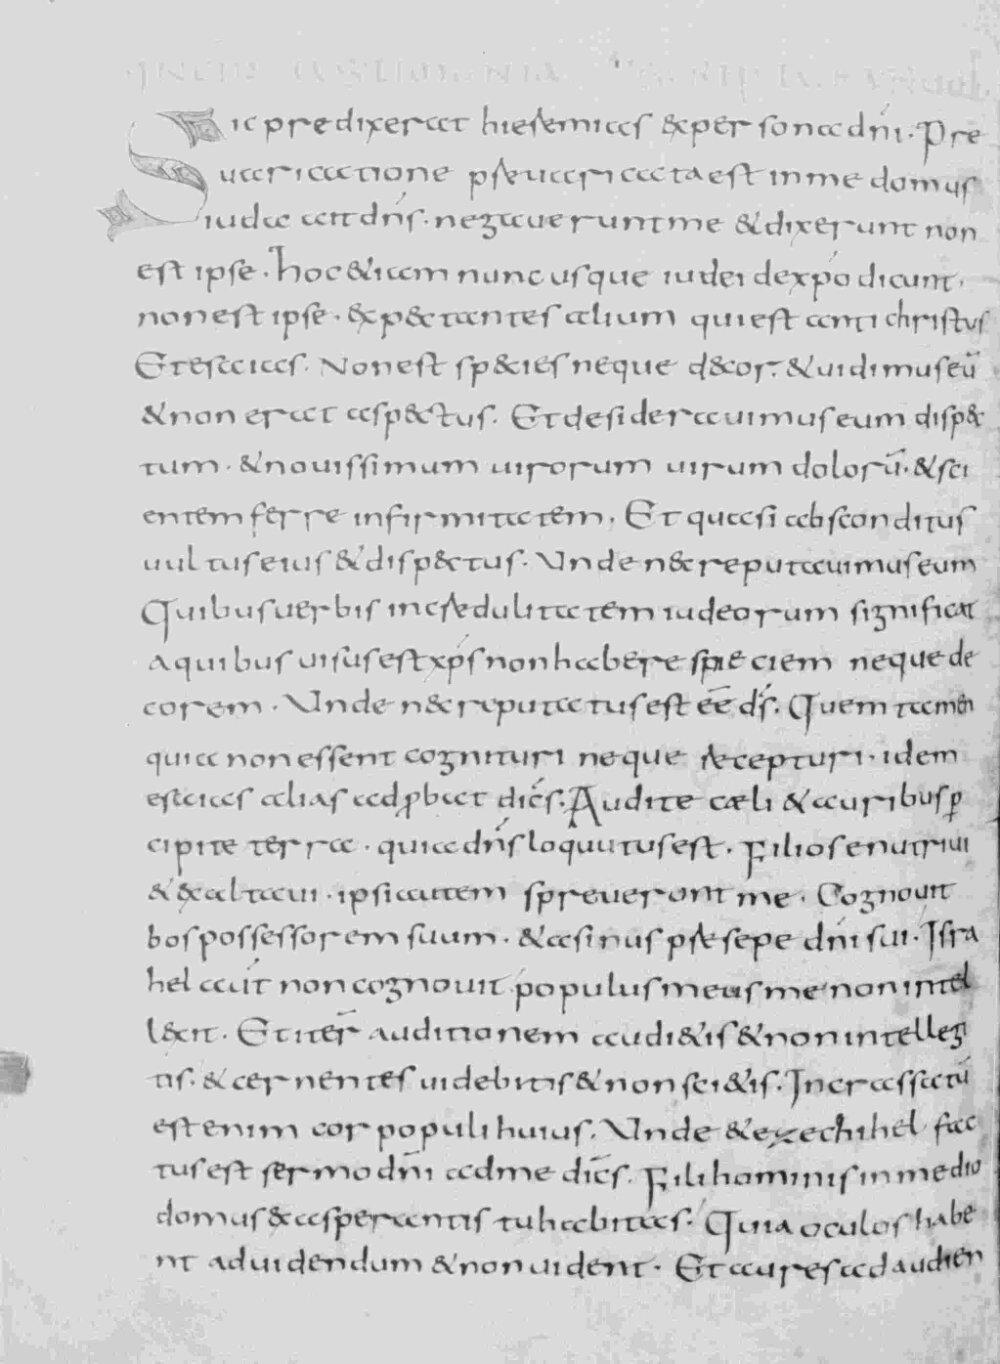 Sic predixerat hieremias & per sona dn̄i. Pre
uaricatione p̄seuaricata est in me domus
iuda ait dn̄s. negauerunt me & dixerunt non
est ipse. hoc & iam nunc usque iudei de xp̄o dicunt.
non est ipse. & exp&tantes alium qui est anti christus
Et esaias. Non est sp&ies neque d&or. & uidimus eū
& non erat asp&tus. Et desiderauimus eum disp&
tum. & nouissimum uirorum uirum dolorū. & sci
entem ferre infirmitatem. Et quasi absconditus
uultus eius & disp&tus. Unde n& reputauimus eum
Quibus uerbis incredulitatem iudeorum significat
A quibus uisus est xp̄s non habere speciem neque de
corem. Unde n& reputatus est eē dš. Quem tamen
quia non essent cognituri neque recepturi. idem
esaias alias adp̲biat diēs. Audite cæli & auribus p̲
cipite terra. quia dn̄s loquutus est. Filios enutriui
& exaltaui. ipsi autem spreuerunt me. Cognouit
bos possessorem suum. & asinus p̄sepe dn̄i sui. Isra
hel aūt non cognouit populus meus me non intel
lexit. Et iter̄ auditionem audi&is & non intelleg
tis. & cernentes uidebitis & non sci&is. Incrassatū
est enim cor populi huius. Unde & ezechihel fac
tus est sermo dn̄i ad me diēs. Fili hominis in medio
domus exasperantis tu habitas. Quia oculos habe
nt ad uidendum & non uident. Et aures ad audien